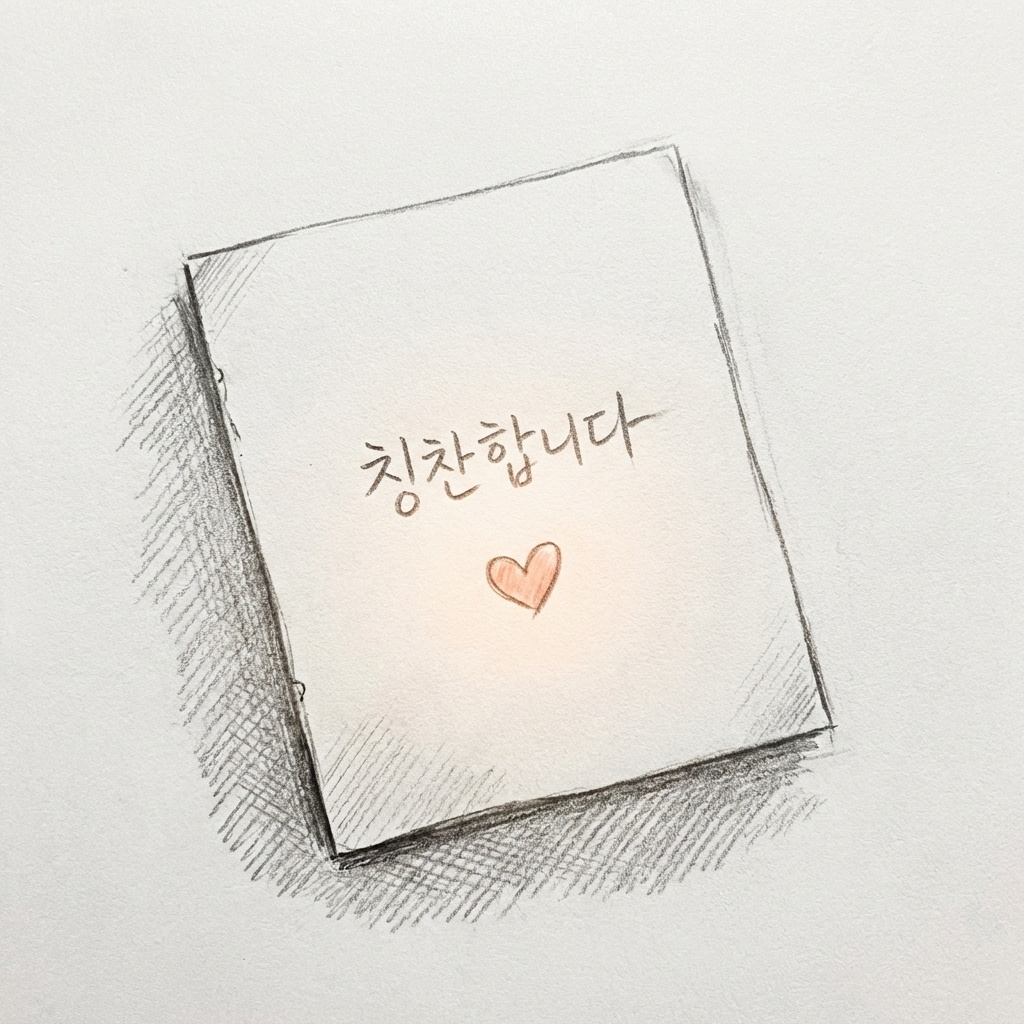 칭찬합니다